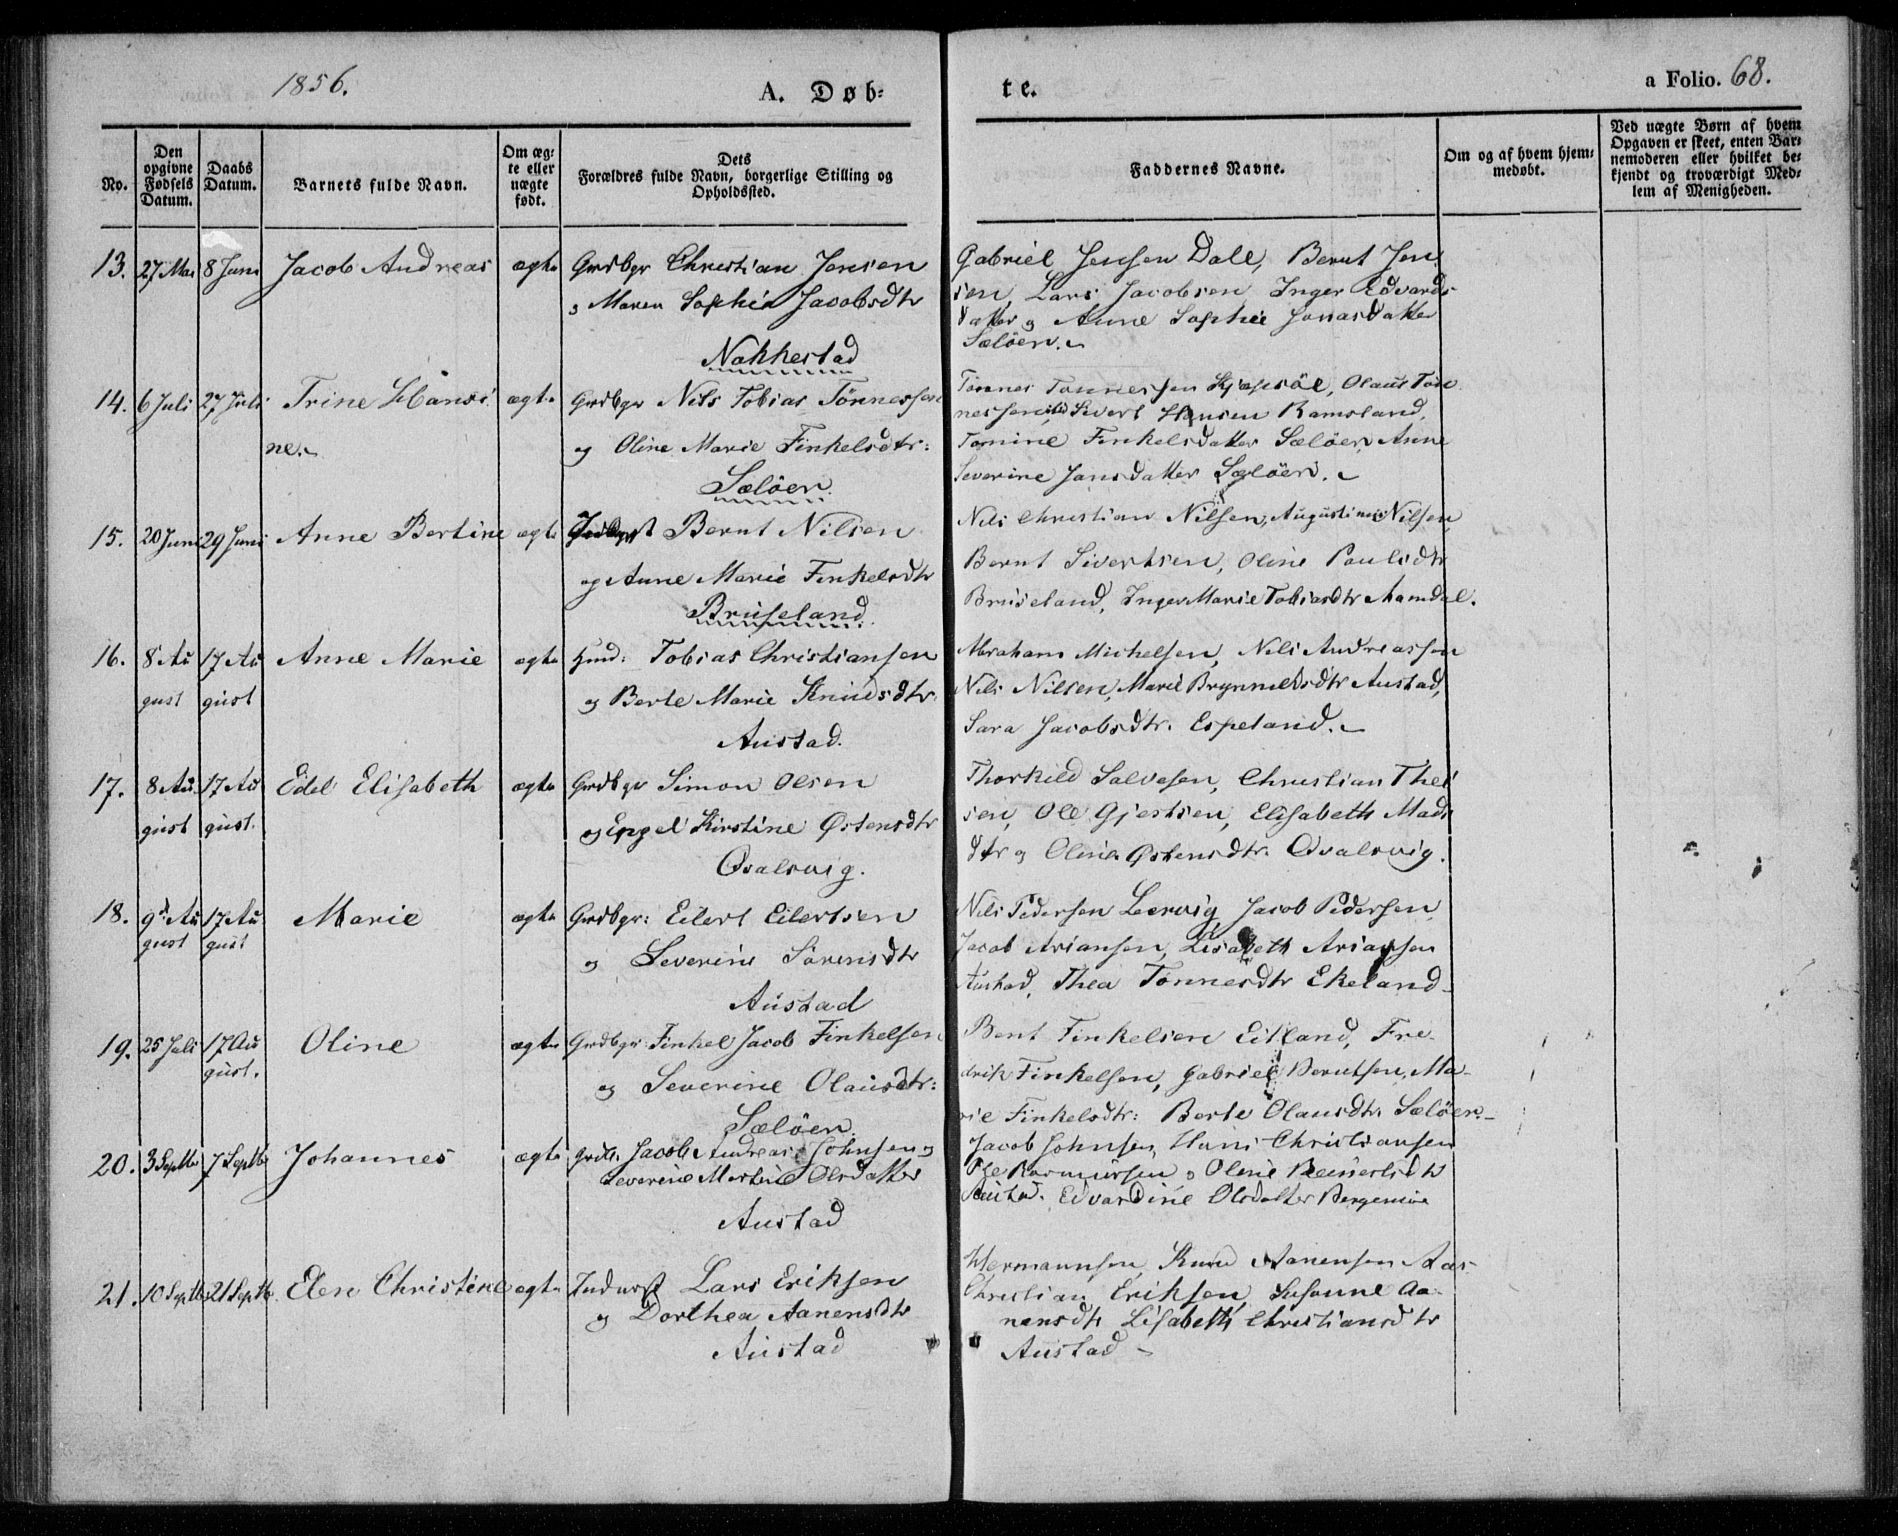 1856.
A. Døb-
te.
a Folio. 68.
No.
Den opgivne Fødsels Datum.
Daabs Datum.
Barnets fulde Navn.
Om ægte eller uægte født.
Dets Forældres fulde Navn, borgerlige Stilling og Opholdssted.
Faddernes Navne.
Om og af hvem hjemmedøbt.
Ved uægte Børn af hvem Opgaven er skeet, enten Barnemoderen eller hvilket bekjendt og troværdigt Medlem af Menigheden.
13. 27 Mai 8 Juni Jacob Andreas ægte Grdbgr Christian Jensen Gabriel Jensen Dale, Bernt Jen
og Maren Sophie Jacobsdtr sen, Lars Jacobsen Inger Edvards
datter og Anne Sophie Jonasdatter
Nakkestad Sæløen.
14. 6 Juli 27 Juli Trine Hansi ægte Grdbgr Nils Tobias Tönnessen Tönnes Tonnessen Olaus Tön
ne. nessen, Sivert Hansen Ramsland,
og Oline Marie Finkelsdtr: Tomine Finkelsdatter Sælöen, Anne
Sælöen Severine Jansdatter Sælöen.
15. 20 Juni 29 Juni Anne Bertine ægte Bernt Nilsen Nils Christian Nilsen, Augustinus Nilsen
og Anne Marie Finkelsdtr Bernt Sivertsen, Oline Paulsdtr
Bruseland Bruseland, Inger Marie Tobiasdtr Aamdal.
16. 8 Au 17 Au Anne Marie ægte Tobias Christiansen Abraham Michelsen, Nils Andreassen
gust gust og Berte Marie Knudsdtr. Nils Nilsen, Marie Brynneldsdtr Austad,
Austad. Sara Jacobsdtr. Espeland.
17. 8 Au 17 Au Edel Elisabeth ægte Grdbgr Simon Olsen Thorkild Salvesen, Christian Thei
gust gust. og Engel Kirstine Østensdtr sen, Ole Gjertsen, Elisabeth Mads
Qvalsvig. dtr og Oline Østensdtr. Qvalsvig.
18. 9d Au 17 Au Marie ægte Grdbgr: Eilert Eilertsen Nils Pedersen Lervig Jacob Pedersen
gust gust og Severine Sörensdtr Jacob Ariansen, Lisabeth Ariansen
Austad Austad, Thea Tonnesdtr Ekeland
19. 25 Juli 17 Au Oline ægte Grdbgr Finkel Jacob Finkelsen Bent Finkelsen Eitland, Fre
gust. og Severine Olausdtr: drik Finkelsen, Gabriel Berntsen, Ma
Sælöen. rie Finkelsdtr: Berte Olausdtr. Sælöen
20. 3 Septbr 7 Septbr Johannes ægte Grdb. Jacob Andreas Johnsen og Jacob Johnsen, Hans Christiansen
Severine Martine Olsdatter Ole Rasmussen og Oline
Austad Austad. Edvardine Olsdatter
21. 10 Septbr 21 Septbr. Elen Christine ægte Inderst Lars Eriksen Hermannsen, Knud Aanensen Aas
og Dorthea Aanensdtr Christian Eriksen, Susanne Aa
nensdtr Lisabeth Christiansdtr
Austad Austad